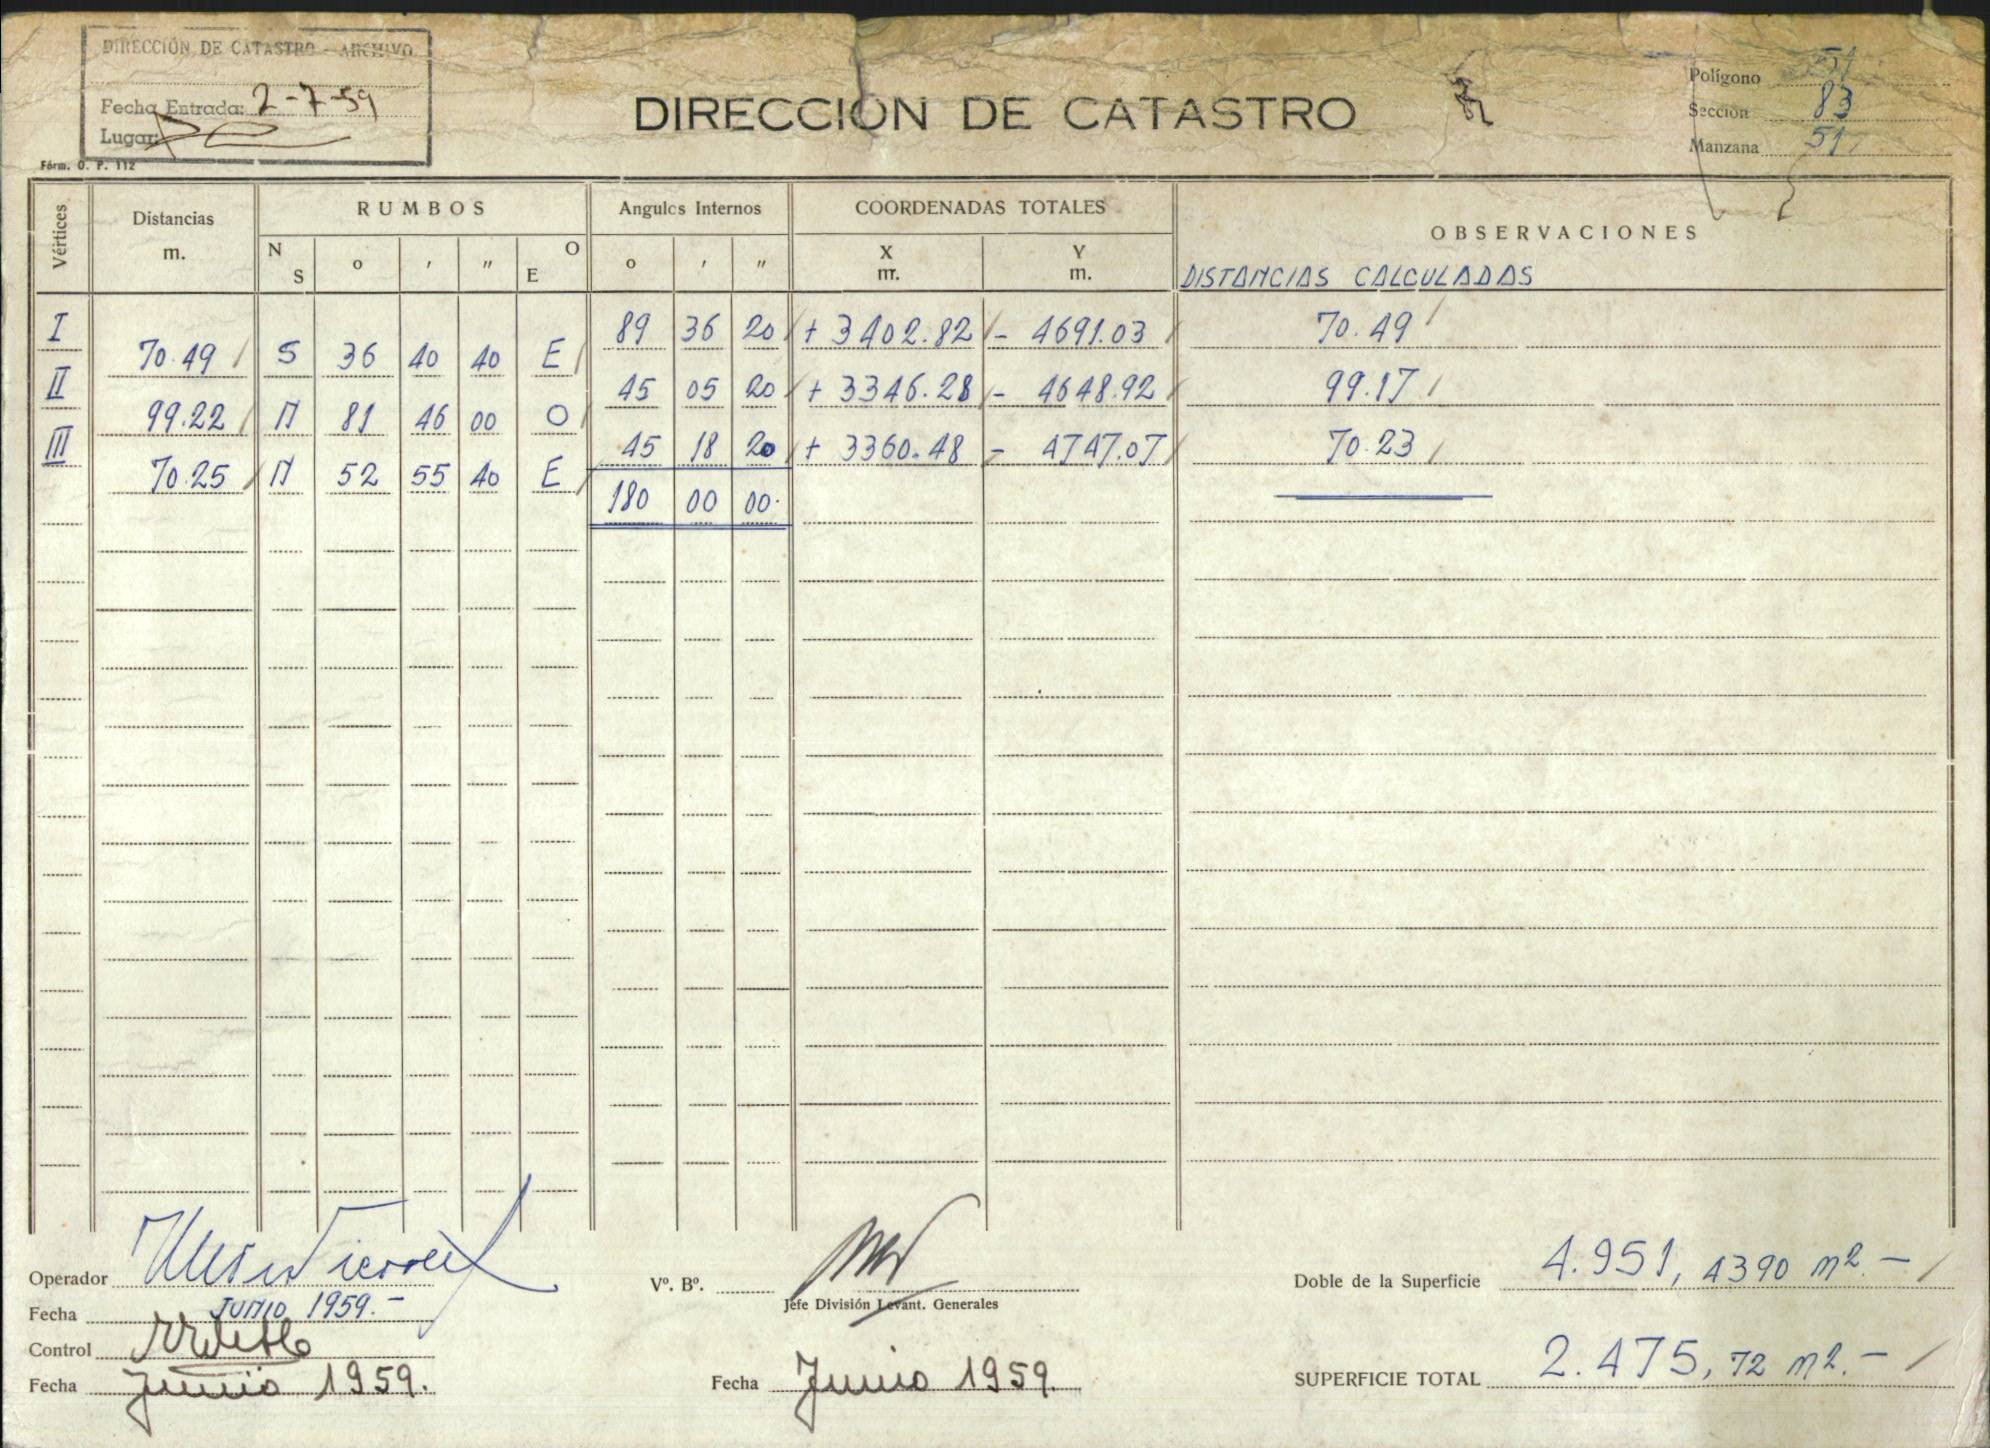 DIRECCIÓN DE CATASTRO - ARCHIVO
Fecha Entrada: 2-7-59
Lugar:
Fórm. O. P. 112
DIRECCION DE CATASTRO
Polígono 51
Sección 83
Manzana 51
Vértices Distancias m. RUMBOS Angulos Internos COORDENADAS TOTALES OBSERVACIONES
N S o ' " O E o ' " X m. Y m.
DISTANCIAS CALCULADAS
I 89 36 20 + 3402.82 - 4691.03 70.49
70.49 S 36 40 40 E
II 45 05 20 + 3346.28 - 4648.92 99.17
99.22 N 81 46 00 O
III 45 18 20 + 3360.48 - 4747.07 70.23
70.25 N 52 55 40 E
180 00 00
Operador
Fecha JUNIO 1959.-
Control
Fecha Junio 1959.
Vº. Bº.
Jefe División Levant. Generales
Fecha Junio 1959.
Doble de la Superficie 4.951,4390 m2.-
SUPERFICIE TOTAL 2.475,72 m2.-